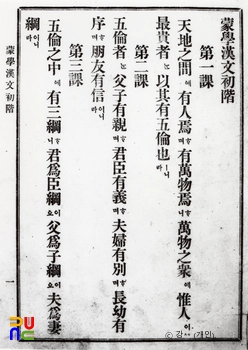 蒙學漢文初階
第一課
天地之間에有人焉ᄒᆞ며有萬物焉ᄒᆞ니萬物之衆에惟人이
最貴者ᄂᆞᆫ以其有五倫也ㅣ니라
第二課
五倫者ᄂᆞᆫ父子有親ᄒᆞ며君臣有義ᄒᆞ며夫婦有別ᄒᆞ며長幼有
序ᄒᆞ며朋友有信이니라
第三課
五倫之中에有三綱ᄒᆞ니君爲臣綱이오父爲子綱이오夫爲妻
綱이니라
蒙學漢文初階